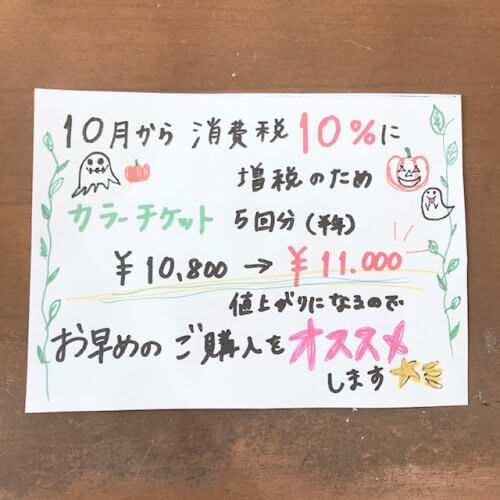 10月から 消費税 10%に
増税のため
カラーチケット 5回分(半年)
¥10,800 → ¥11.000
値上がりになるので
お早めの ご購入を オススメ
します